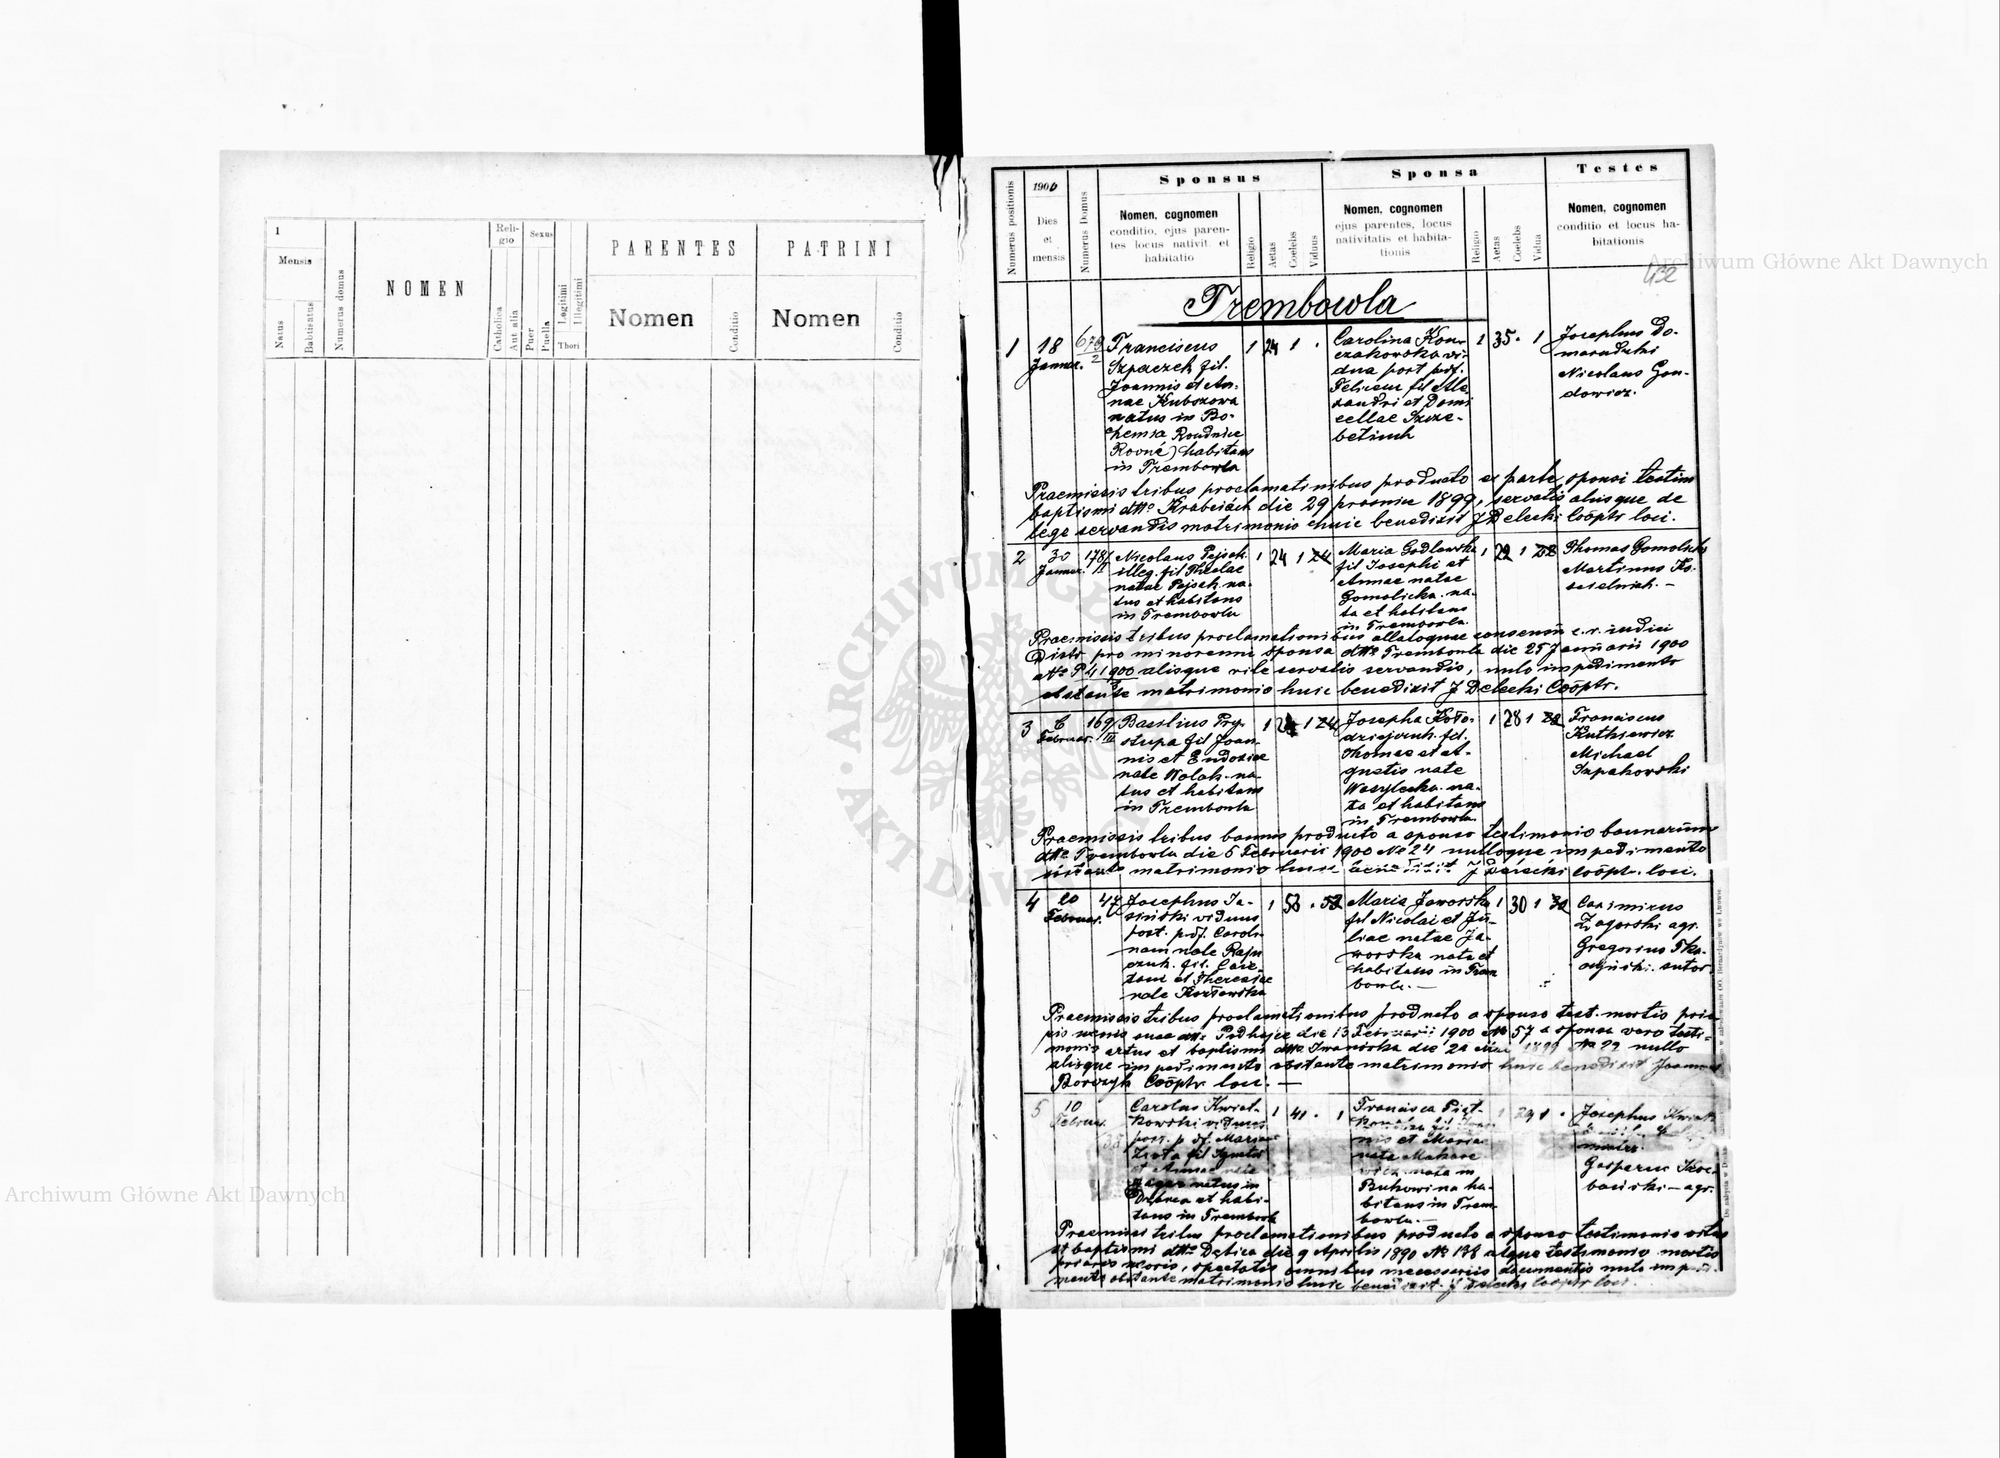 1
Mensis
Natus
Babtisatus
Numerus domus
NOMEN
Reli-
gio
Catholica
Aut alia
Sexus
Puer
Puella
Legitimi
Illegitimi
Thori
PARENTES
Nomen
Conditio
PATRINI
Nomen
Conditio
Numerus positionis
1900
Dies
et
mensis
Numerus Domus
Sponsus
Nomen, cognomen
conditio, ejus paren-
tes locus nativit. et
habitatio
Religio
Aetas
Coelebs
Viduus
Sponsa
Nomen, cognomen
ejus parentes, locus
nativitatis et habita-
tionis
Religio
Aetas
Coelebs
Vidua
Testes
Nomen, cognomen
conditio et locus ha-
bitationis
Archiwum Główne Akt Dawnych
432
Trembowla
1 18 Januar.
Franciscus
Szpaczek fil.
Joannis et An-
nae Kubszowa
natus in Bo-
hemia Roudnice
Rovné) habitans
in Trembowla
1 24 1
Carolina
vi-
dua post
fil Ale
xandri et Domi
cellae
1 35 . 1
Josephus Do-
maradzki
Nicolaus Gon-
dowicz.
Praemissis tribus proclamationibus producto ex parte sponsi testim
baptismi dtto die 29 1899, servatis aliisque de
lege servandis matrimonio huic benedixit J Delecki Coöptr loci.
2 30 Januar. 178/II
Nicolaus Pejsch
illeg. fil Theclae
natae Pejsch na-
tus et habitans
in Trembowla
1 24 1 24
Maria Godlewska
fil Josephi et
Annae natae
Gomolicka na-
ta et habitans
in Trembowla.
1 22 1
Thomas Gomolicki
Martinus Ko-
scielniak. —
Praemissis tribus proclamationibus allatoque consensu c. r. iudici
Distr. pro minorenni sponsa dtto Trembowla die 25 Januarii 1900
No P 41900 aliisque rite servatis servandis, nulo impedimento
obstante matrimonio huic benedixit J Delecki Coöptr.
3 6 Februar. 169/III
Basilius Pry-
stupa fil Joan-
nis et Eudoxiae
nate Wolok. na-
tus et habitans
in Trembowla
1 24 1 24
Josepha Koło-
dziejczuk. fil.
Thomae et A-
gnetis nate
Wasylecka. na-
ta et habitans
in Trembowla.
1 28 1
Franciscus
Kutkiewicz
Michael
Szpakowski
Praemissis tribus bannis producto a sponso testimonio bannorum
dtto Trembowla die 5 Februarii 1900 No 24 nulloque impedimento
matrimonio huic benedixit J Delecki Coöptr. loci.
4 20 Februar. 47
Josephus Ja-
siński viduus
post. p. df. Caroli-
nam nate
fil. Caie-
tani et Theresiae
nate
1 53 . 53
Maria Jaworska
fil Nicolai et Ju-
liae natae Ja-
worska nata et
habitans in Trem
bowla. —
1 30 1 30
Casimirus
Zagórski agr.
Gregorius Tka-
sutor
Praemissis tribus proclamationibus producto a sponso test. mortis prio-
ris uxoris suae dtto Podhajce die 13 Februarii 1900 No 57 a sponsa vero testi-
monio ortus et baptismi dtto Iwanówka die 1899 No 22 nullo
alioque impedimento obstante matrimonio huic benedixit Joannes
Coöptr loci. —
5 10 Februar.
Carolus Kwiat-
kowski viduus
post. p. df. Mariam
fil Ignatii
et Annae nate
natus in
Dębica et habi-
tans in Trembowla
1 41 . 1
Francisca Piąt-
fil Joan-
nis et Maria
nata Makare
wicz nata in
Bukowina ha-
bitans in Trem
bowla. —
1 29 1 .
Josephus
Gasparus
— agr.
Praemissis tribus proclamationibus producto a sponso testimonio ortus
et baptismi dtto Dębica die 9 Aprilis 1890 No 138 atque testimonio mortis
prioris uxoris, spectatis omnibus necessariis documentis nulo impedi-
mento obstante matrimonio huic benedixit. J Delecki Coöptr loci.
ARCHIWUM GŁÓWNE AKT DAWNYCH
Archiwum Główne Akt Dawnych